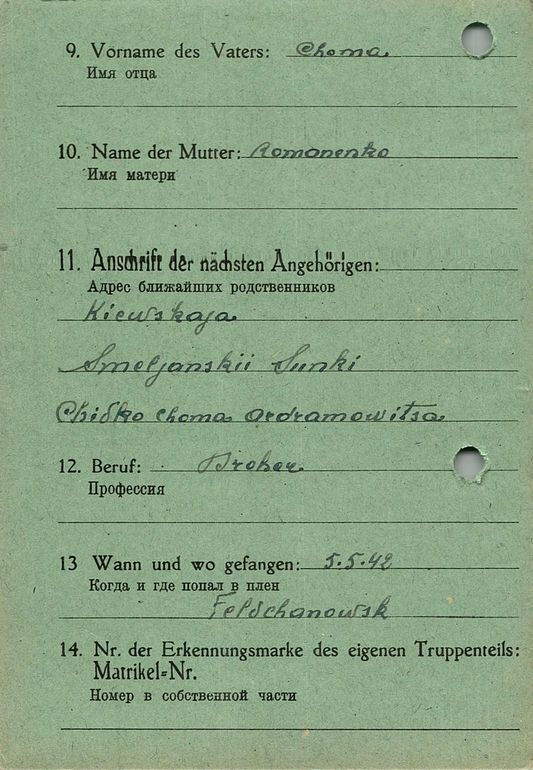 9. Vorname des Vaters: Choma
Имя отца
10. Name der Mutter: Romanenko
Имя матери
11. Anschrift der nächsten Angehörigen:
Адрес ближайших родственников
Kiewskaja
Smeljanskii Sunki
Choma
12. Beruf:
Профессия
13 Wann und wo gefangen: 5.5.42
Когда и где попал в плен
Feldchanowsk
14. Nr. der Erkennungsmarke des eigenen Truppenteils:
Matrikel=Nr.
Номер в собственной части